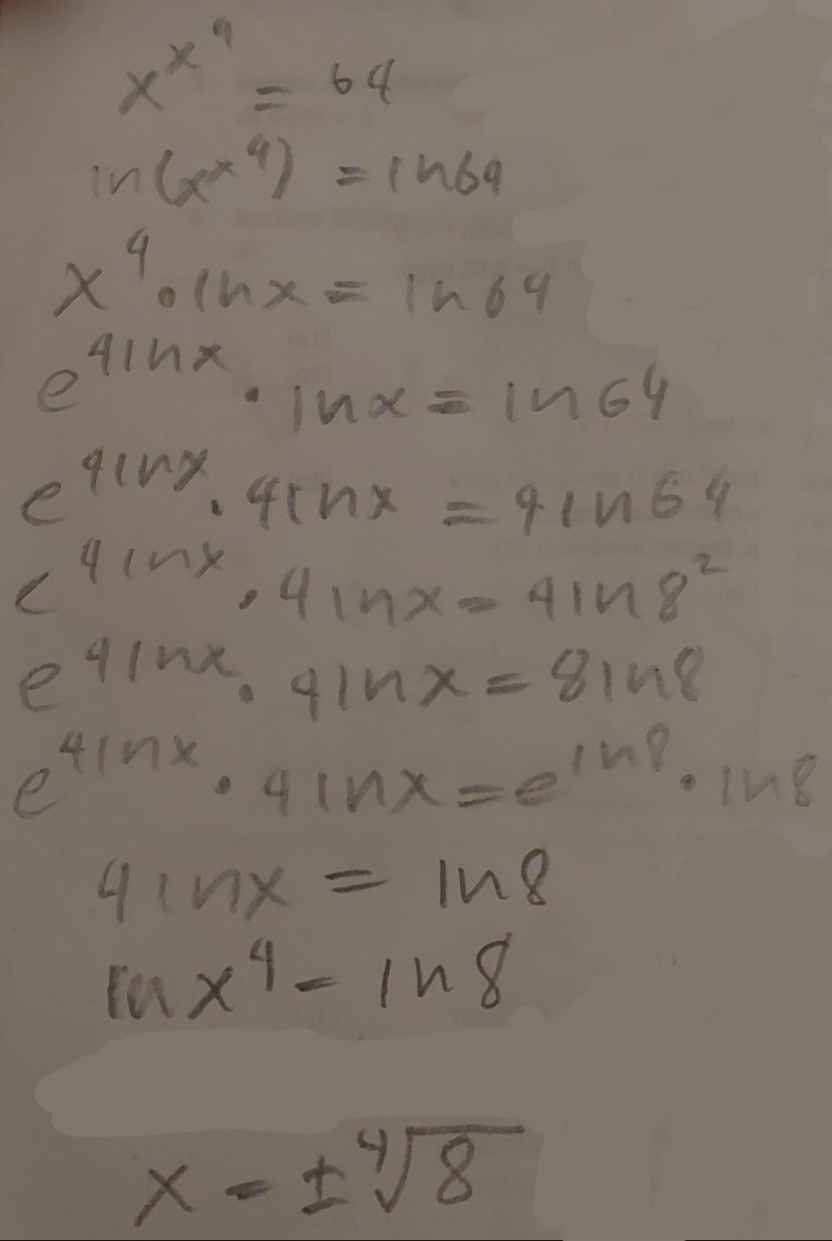 x^x^4 = 64
ln(x^x^4) = ln64
x^4 · lnx = ln64
e^4lnx · lnx = ln64
e^4lnx · 4lnx = 4ln64
e^4lnx · 4lnx = 4ln8^2
e^4lnx · 4lnx = 8ln8
e^4lnx · 4lnx = e^ln8 · ln8
4lnx = ln8
lnx^4 = ln8
x = ±∜8